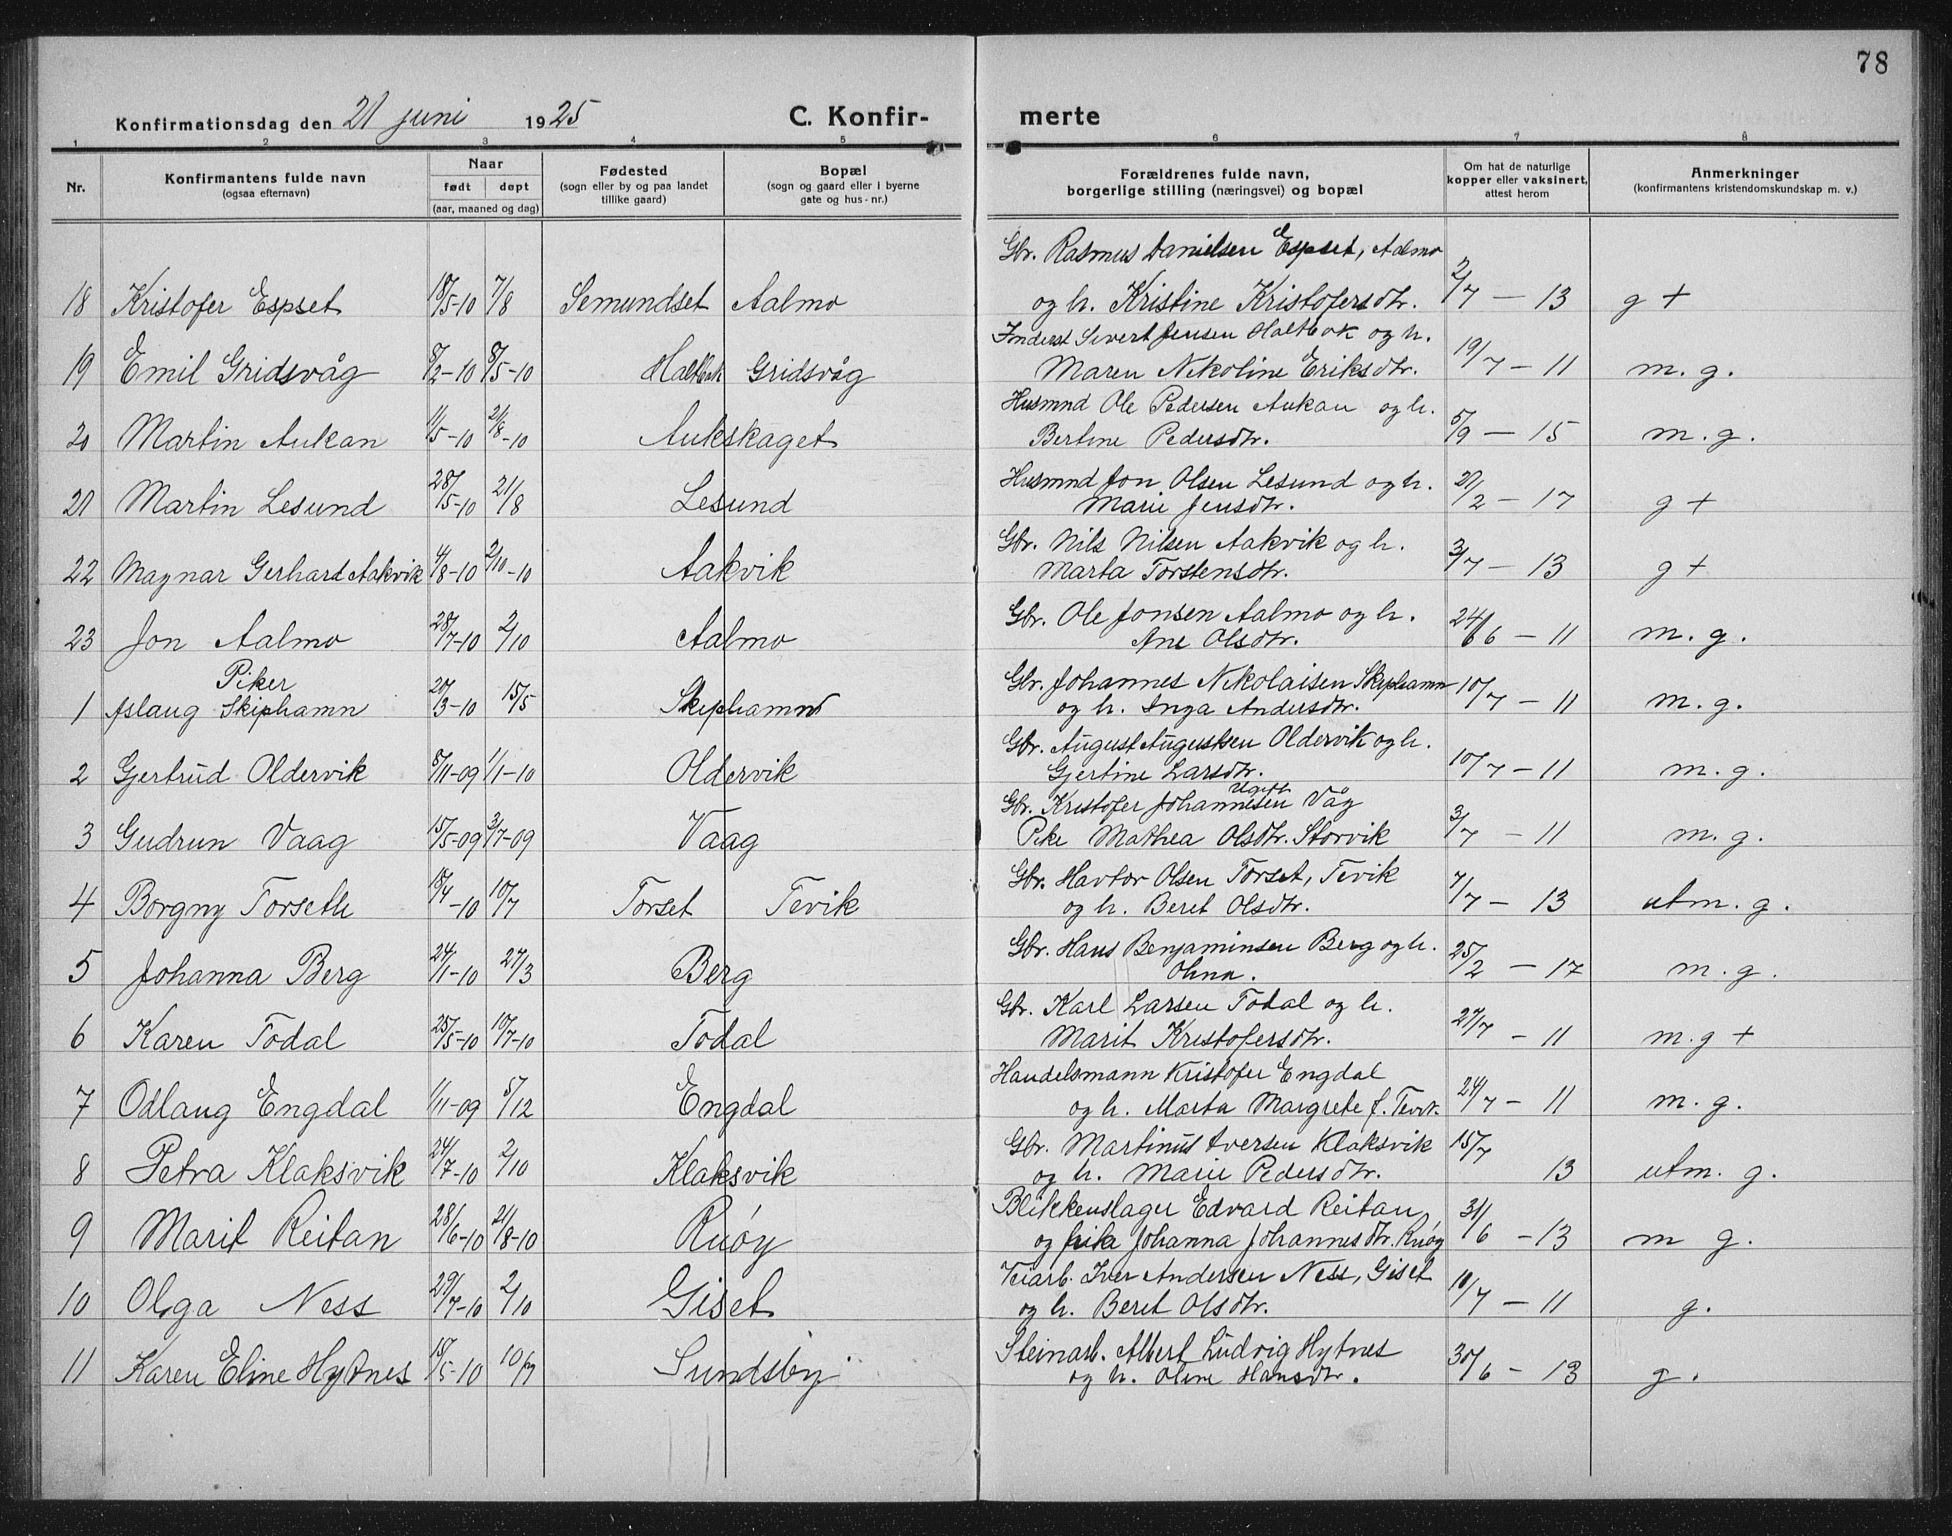 78
Konfirmationsdag den 21 juni 1925 C. Konfir- merte
1 2 3 4 5 6 7 8
Nr. Konfirmantens fulde navn (ogsaa efternavn) Naar født døpt (aar, maaned og dag) Fødested (sogn eller by og paa landet tillike gaard) Bopæl (sogn og gaard eller i byerne gate og hus-nr.) Forældrenes fulde navn, borgerlige stilling (næringsvei) og bopæl Om hat de naturlige kopper eller vaksinert, attest herom Anmerkninger (konfirmantens kristendomskundskap m. v.)
Gbr. Rasmus Danielsen Espset, Aalmo
18 Kristofer Espset 18/5-10 7/8 Semundset Aalmo og h. Kristine Kristofersdtr. 2/7 - 13 g +
Inderst Sivert Jensen Haltbak og h.
19 Emil Gridsvåg 8/2-10 8/5-10 Haltbak Gridsvåg Maren Nikoline Eriksdtr. 19/7 - 11 m. g.
Husmnd Ole Pedersen Aukan og h.
20 Martin Aukan 11/5-10 21/8-10 Aukskaget Bertine Pedersdtr. 5/9 - 15 m. g.
Husmnd Jon Olsen Lesund og h.
21 Martin Lesund 28/5-10 21/8 Lesund Marie Jensdtr. 21/2 - 17 g +
Gbr. Nils Nilsen Aakvik og h.
22 Magnar Gerhard Aakvik 4/8-10 2/10-10 Aakvik Marta Torstensdtr. 3/7 - 13 g +
Gbr. Ole Jonsen Aalmo og h.
23 Jon Aalmo 28/7-10 2/10 Aalmo Ane Olsdtr. 24/6 - 11 m. g.
Piker
Gbr. Johannes Nikolaisen Skiphamn
1 Aslaug Skiphamn 20/3-10 15/5 Skiphamn og h. Inga Andersdtr. 10/7 - 11 m. g.
Gbr. August Augustsen Oldervik og h.
2 Gjertrud Oldervik 8/11-09 1/1-10 Oldervik Gjertine Larsdtr. 10/7 - 11 m. g.
Ugift
Gbr. Kristofer Johannesen Våg
3 Gudrun Vaag 15/5-09 3/7-09 Vaag Pike Mathea Olsdtr. Storvik 3/7 - 11 m. g.
Gbr. Havtor Olsen Torset, Tevik
4 Borgny Torseth 18/4-10 10/7 Torset Tevik og h. Beret Olsdtr. 7/7 - 13 utm. g.
Gbr. Hans Benjaminsen Berg og h.
5 Johanna Berg 24/1-10 27/3 Berg Olina. 25/2 - 17 m. g.
Gbr. Karl Larsen Todal og h.
6 Karen Todal 25/5-10 10/7-10 Todal Marit Kristofersdtr. 27/7 - 11 m. g +
Handelsmann Kristofer Engdal
7 Odlaug Engdal 1/11-09 5/12 Engdal og h. Marta Margrete f. Tevik 24/7 - 11 m. g.
Gbr. Martinus Iversen Klaksvik
8 Petra Klaksvik 24/7-10 2/10 Klaksvik og h. Marie Pedersdtr. 15/7 13 utm. g.
Blikkenslager Edvard Reitan,
9 Marit Reitan 28/6-10 21/8-10 Ruøy og Johanna Johannesdtr. Ruøy 31/6 - 13 m g.
Veiarb. Iver Andersen Ness, Giset
10 Olga Ness 29/7-10 2/10 Giset og h. Beret Olsdtr. 10/7 - 11 g.
Steinarb. Albert Ludvig Hytnes
11 Karen Eline Hytnes 15/5-10 10/7 Sundsby og h. Oline Hansdtr. 30/6 - 13 g.